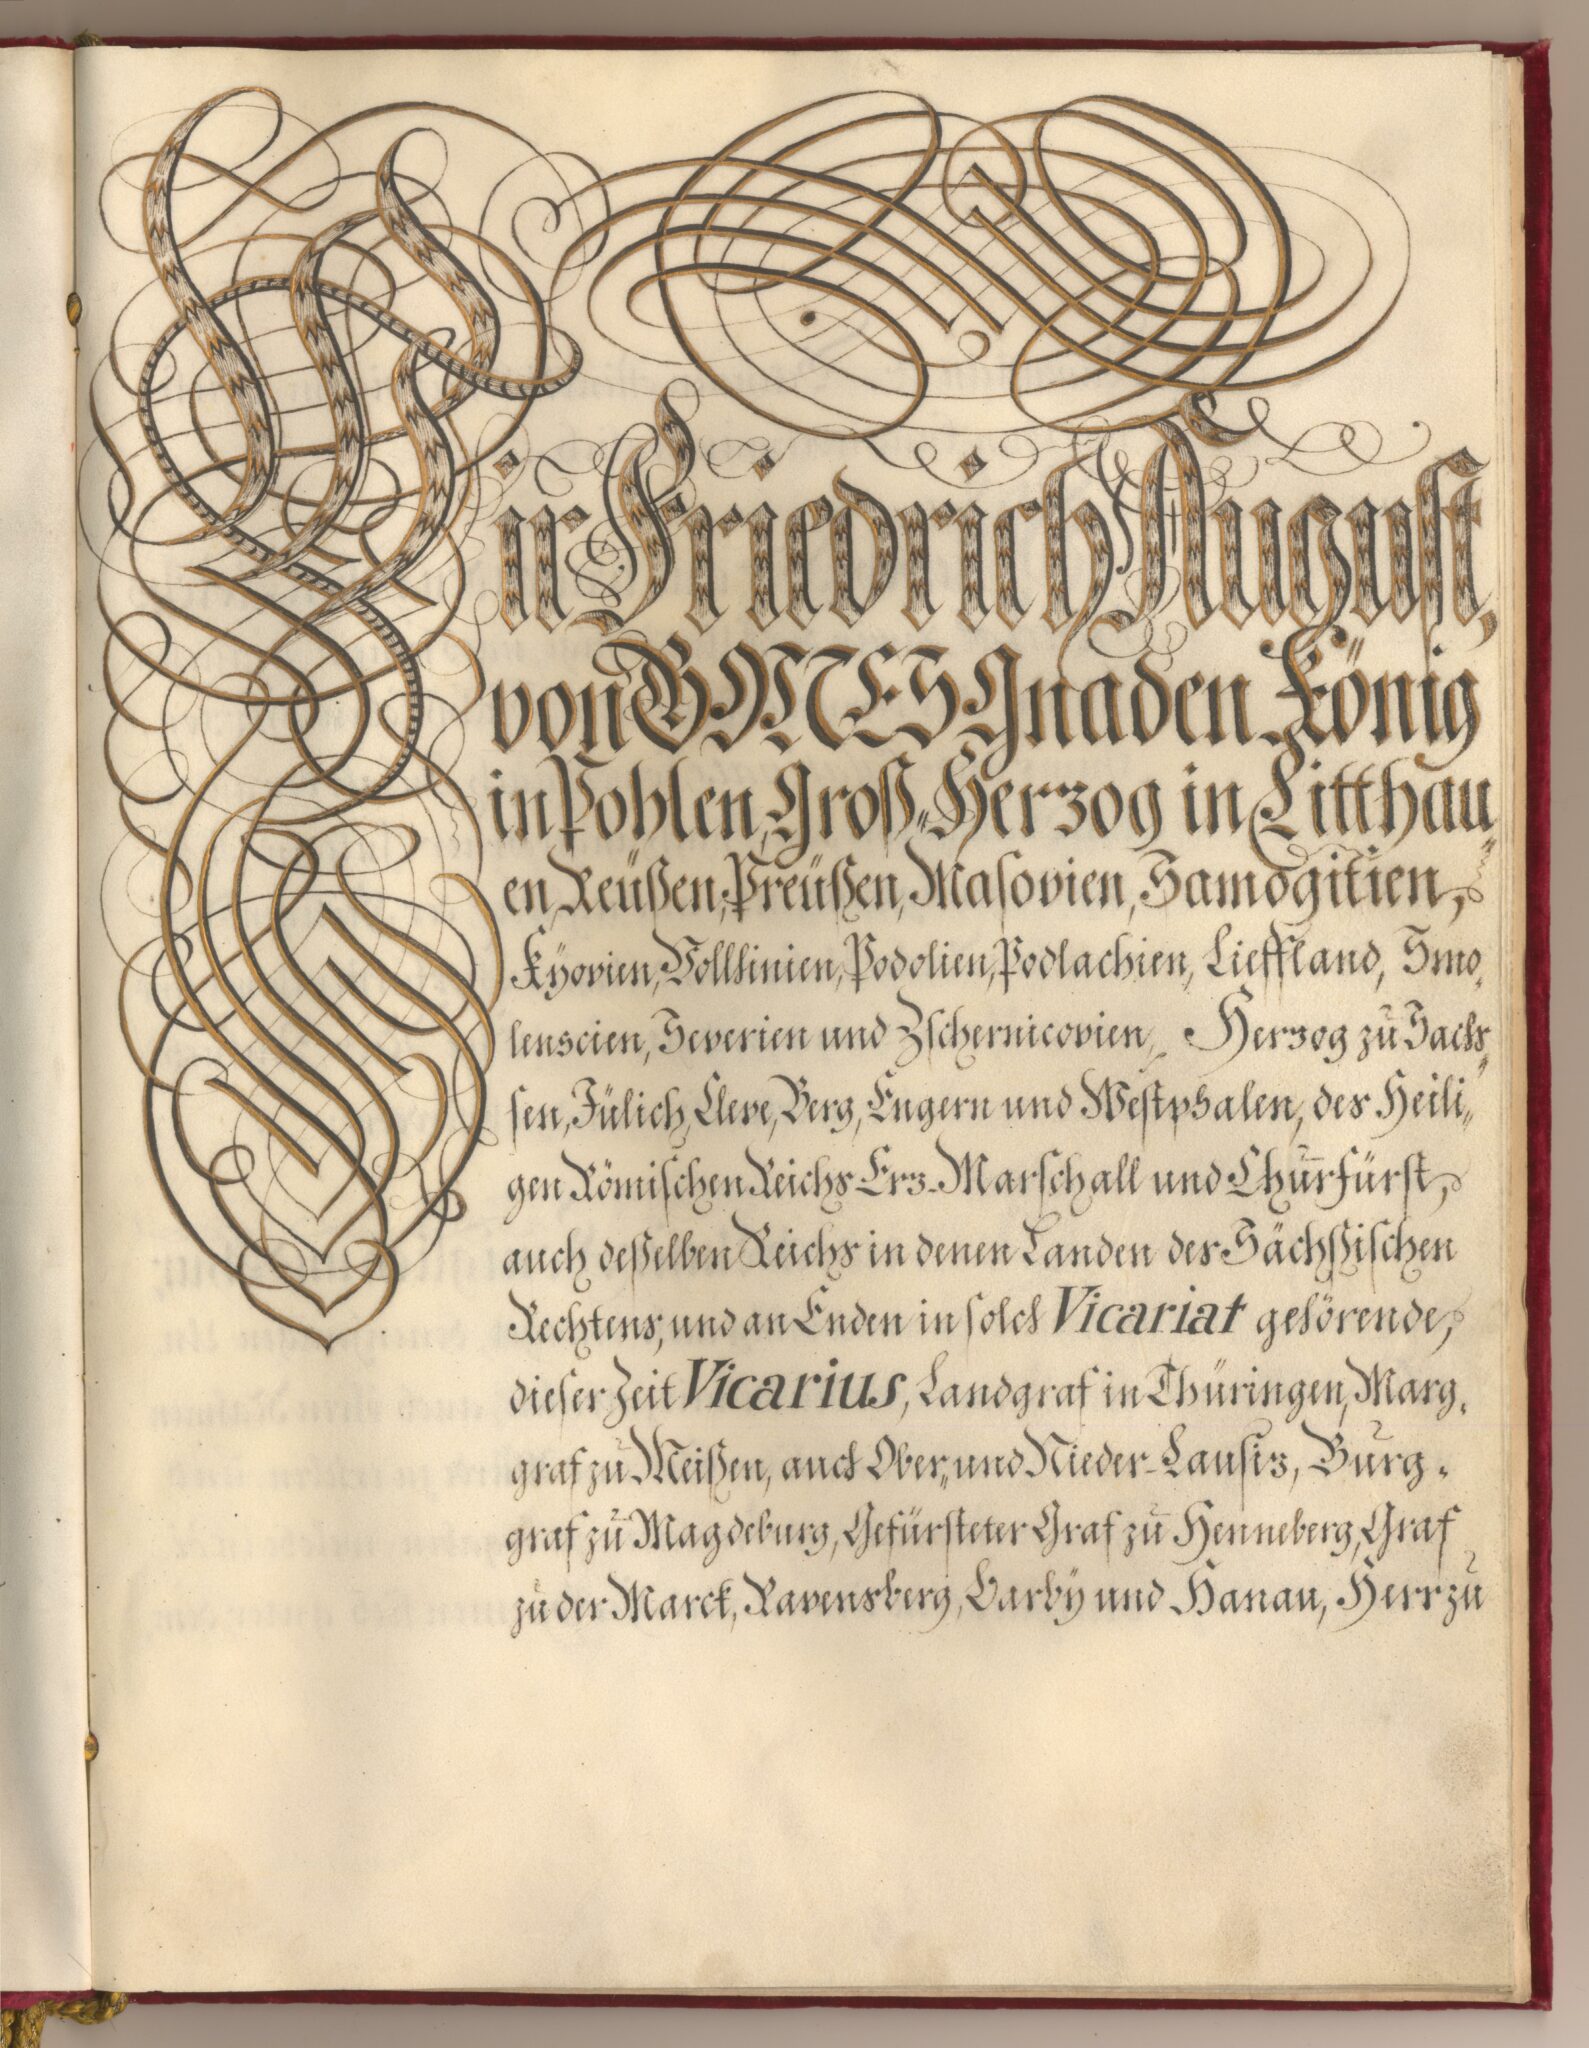 Wir Friedrich August,
von GOTTES Gnaden König
in Pohlen, Groß-Herzog in Litthau-
en, Reüßen, Preüßen, Masovien, Samogitien,
Kÿovien, Vollhinien, Podolien, Podlachien, Lieffland, Smo-
lenscien, Severien und Zschernicovien, Herzog zu Sach-
sen, Jülich, Cleve, Berg, Engern und Westphalen, des Heili-
gen Römischen Reichs Erz-Marschall und Churfürst,
auch deßelben Reichs in denen Landen des Sächßischen
Rechtens, und an Enden in solch Vicariat gehörende,
dieser Zeit Vicarius, Landgraf in Thüringen, Marg-
graf zu Meißen, auch Ober- und Nieder-Lausiz, Burg-
graf zu Magdeburg, Gefürsteter Graf zu Henneberg, Graf
zu der Marck, Ravensberg, Barbÿ und Hanau, Herr zu